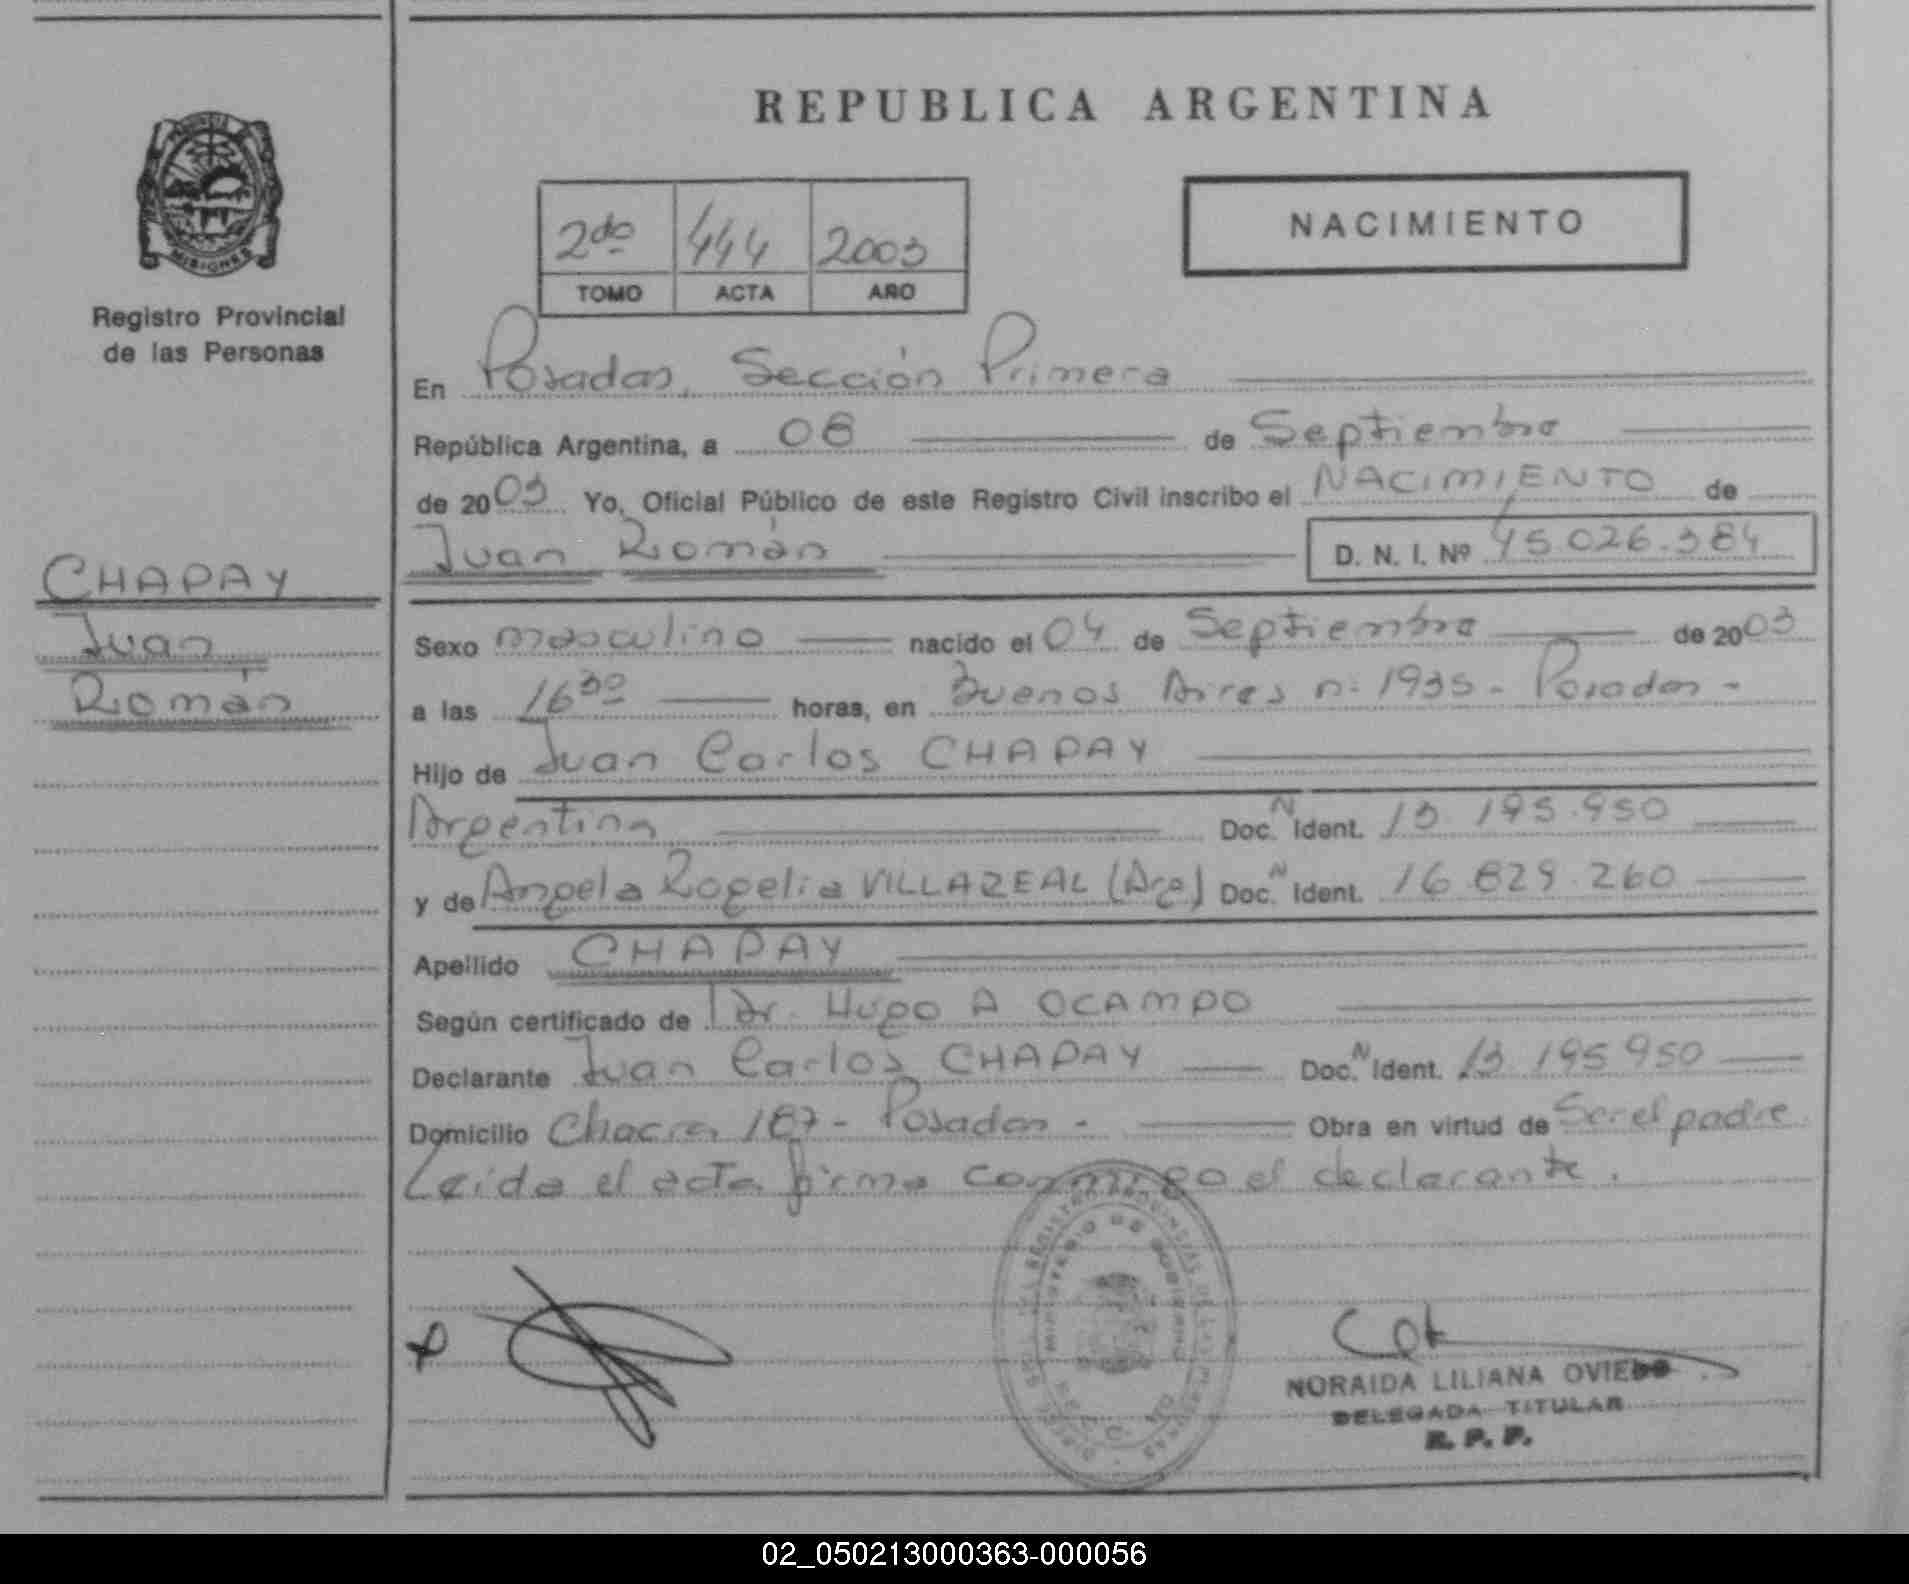 REPUBLICA ARGENTINA
2do 444 2003
TOMO ACTA AÑO
NACIMIENTO
MISIONES
Registro Provincial
de las Personas
CHAPAY
Juan
Román
En Posadas, Sección Primera
República Argentina, a 08 de Septiembre
de 2003 Yo, Oficial Público de este Registro Civil inscribo el NACIMIENTO de
Juan Román D. N. I. Nº 45.026.384
Sexo masculino nacido el 04 de Septiembre de 2003
a las 16 30 horas, en Buenos Aires nº 1935 - Posadas -
Hijo de Juan Carlos CHAPAY
Argentina Doc. N Ident. 13.195.950
y de Angela Rogelia VILLAREAL (Arg) Doc. N Ident. 16.829.260
Apellido CHAPAY
Según certificado de Dr. Hugo A OCAMPO
Declarante Juan Carlos CHAPAY Doc. N Ident. 13 195 950
Domicilio Chacra 187 - Posadas - Obra en virtud de Ser el padre.
Leida el acta firma conmigo el declarante.
MINISTERIO DE GOBIERNO
NORAIDA LILIANA OVIEDO
DELEGADA TITULAR
R. P. P.
02_050213000363-000056